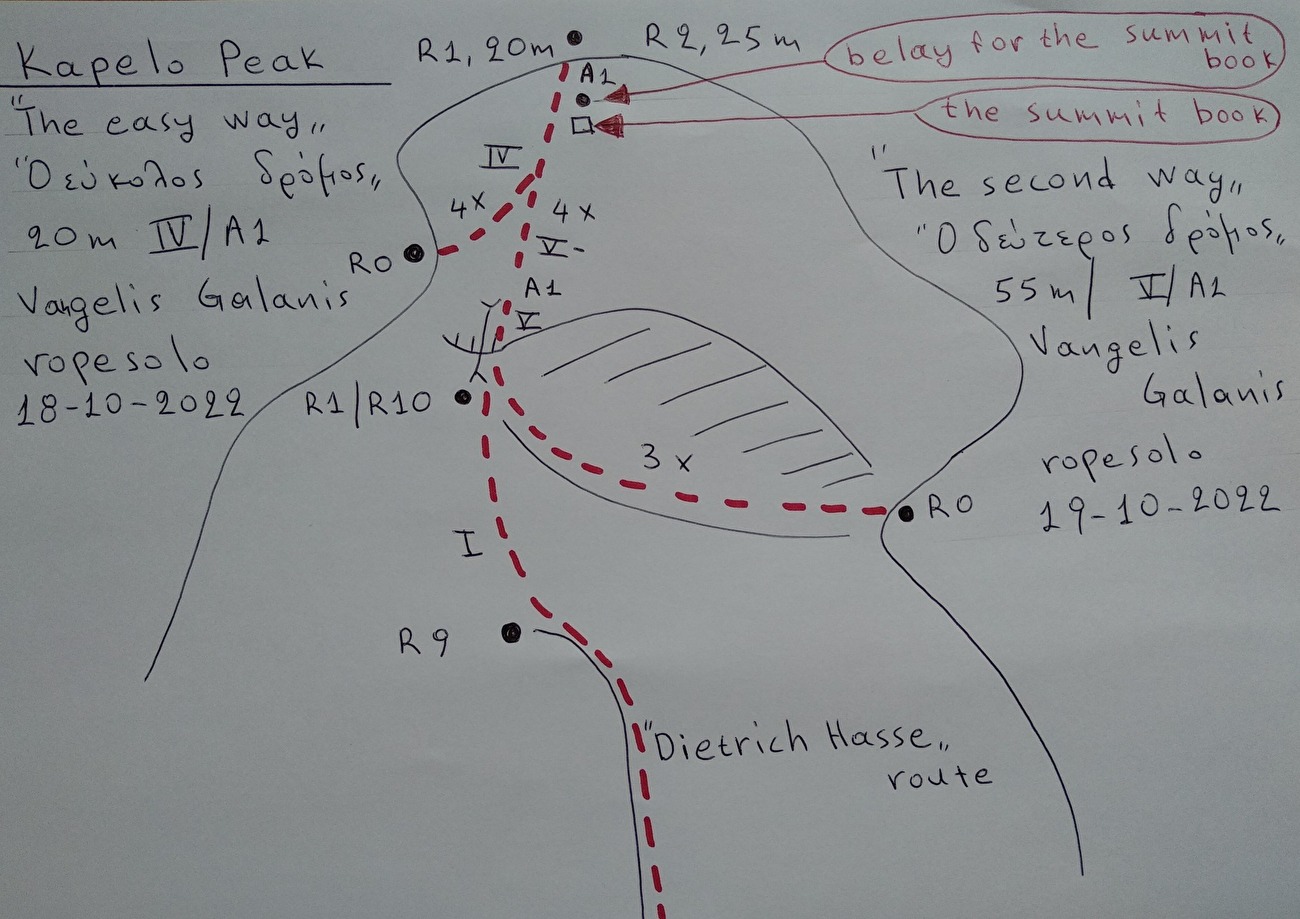 Kapelo Peak
"The easy way„
"Ο εύκολος δρόμος„
20m IV/A1
Vangelis Galanis
rope solo
18-10-2022
R1, 20m
R2, 25m
A1
belay for the summit
book
the summit book
IV
4x
4x
V-
R0
A1
V
R1/R10
3x
R0
I
R9
"Dietrich Hasse„
route
"The second way„
"Ο δεύτερος δρόμος„
55m/ V/A1
Vangelis
Galanis
rope solo
19-10-2022